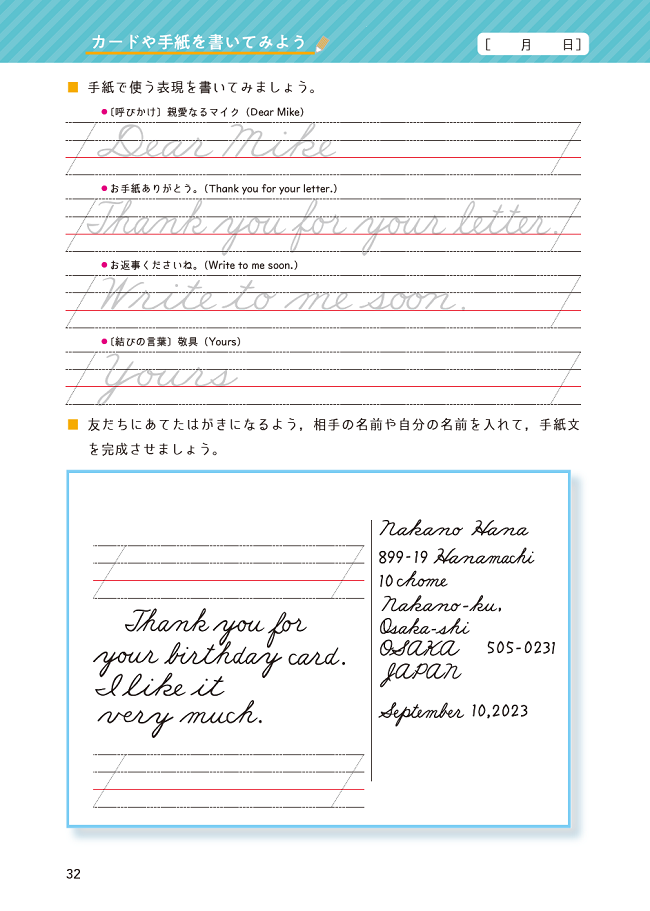 カードや手紙を書いてみよう
[ 月 日]
■ 手紙で使う表現を書いてみましょう。
●〔呼びかけ〕親愛なるマイク（Dear Mike）
Dear Mike
●お手紙ありがとう。（Thank you for your letter.）
Thank you for your letter.
●お返事くださいね。（Write to me soon.）
Write to me soon.
●〔結びの言葉〕敬具（Yours）
Yours
■ 友だちにあてたはがきになるよう，相手の名前や自分の名前を入れて，手紙文
を完成させましょう。
Thank you for
your birthday card.
I like it
very much.
Nakano Hana
899-19 Hanamachi
10 chome
Nakano-ku,
Osaka-shi
OSAKA 505-0231
JAPAN
September 10,2023
32